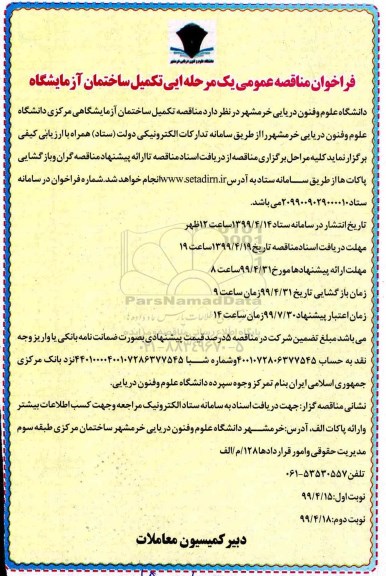 فراخوان مناقصه عمومی یک مرحله ایی تکمیل ساختمان آزمایشگاه
دانشگاه علوم وفنون دریایی خرمشهر در نظر دارد مناقصه تکمیل ساختمان آزمایشگاهی مرکزی دانشگاه
علوم وفنون دریایی خرمشهر را از طریق سامانه تدارکات الکترونیکی دولت (ستاد) همراه با ارزیابی کیفی
برگزار نماید کلیه مراحل برگزاری مناقصه از دریافت اسناد مناقصه تا ارائه پیشنهاد مناقصه گران و بازگشایی
پاکات ها از طریق سامانه ستاد به آدرس www.setadirn.ir انجام خواهد شد. شماره فراخوان در سامانه
ستاد ۲۰۹۹۰۰۹۰۲۹۰۰۰۰۱۰ می باشد.
تاریخ انتشار در سامانه ستاد ۱۳۹۹/۴/۱۴ ساعت ۱۲ ظهر
مهلت دریافت اسناد مناقصه تاریخ ۱۳۹۹/۴/۱۹ ساعت ۱۹
مهلت ارائه پیشنهادها مورخ ۹۹/۴/۳۱ ساعت ۸
زمان بازگشایی تاریخ ۹۹/۴/۳۱ زمان ساعت ۹
زمان اعتبار پیشنهاد ۹۹/۷/۳۰ زمان ساعت ۱۴
ParsNamadData
می باشد مبلغ تضمین شرکت در مناقصه ۵ درصد قیمت پیشنهادی بصورت ضمانت نامه بانکی یا واریز وجه
نقد به حساب ۴۰۰۱۰۷۲۸۰۶۳۷۷۵۴۵ وشماره شبا نزد بانک مرکزی
جمهوری اسلامی ایران بنام تمرکز وجوه سپرده دانشگاه علوم وفنون دریایی.
نشانی مناقصه گزار: جهت دریافت اسناد به سامانه ستاد الکترونیک مراجعه وجهت کسب اطلاعات بیشتر
وارائه پاکات الف، آدرس: خرمشهر دانشگاه علوم وفنون دریایی خرمشهر ساختمان مرکزی طبقه سوم
مدیریت حقوقی وامور قراردادها ۱۲۸/م/الف
تلفن ۵۳۵۳۰۵۵۷-۰۶۱
نوبت اول: ۹۹/۴/۱۵
نوبت دوم: ۹۹/۴/۱۸
دبیر کمیسیون معاملات